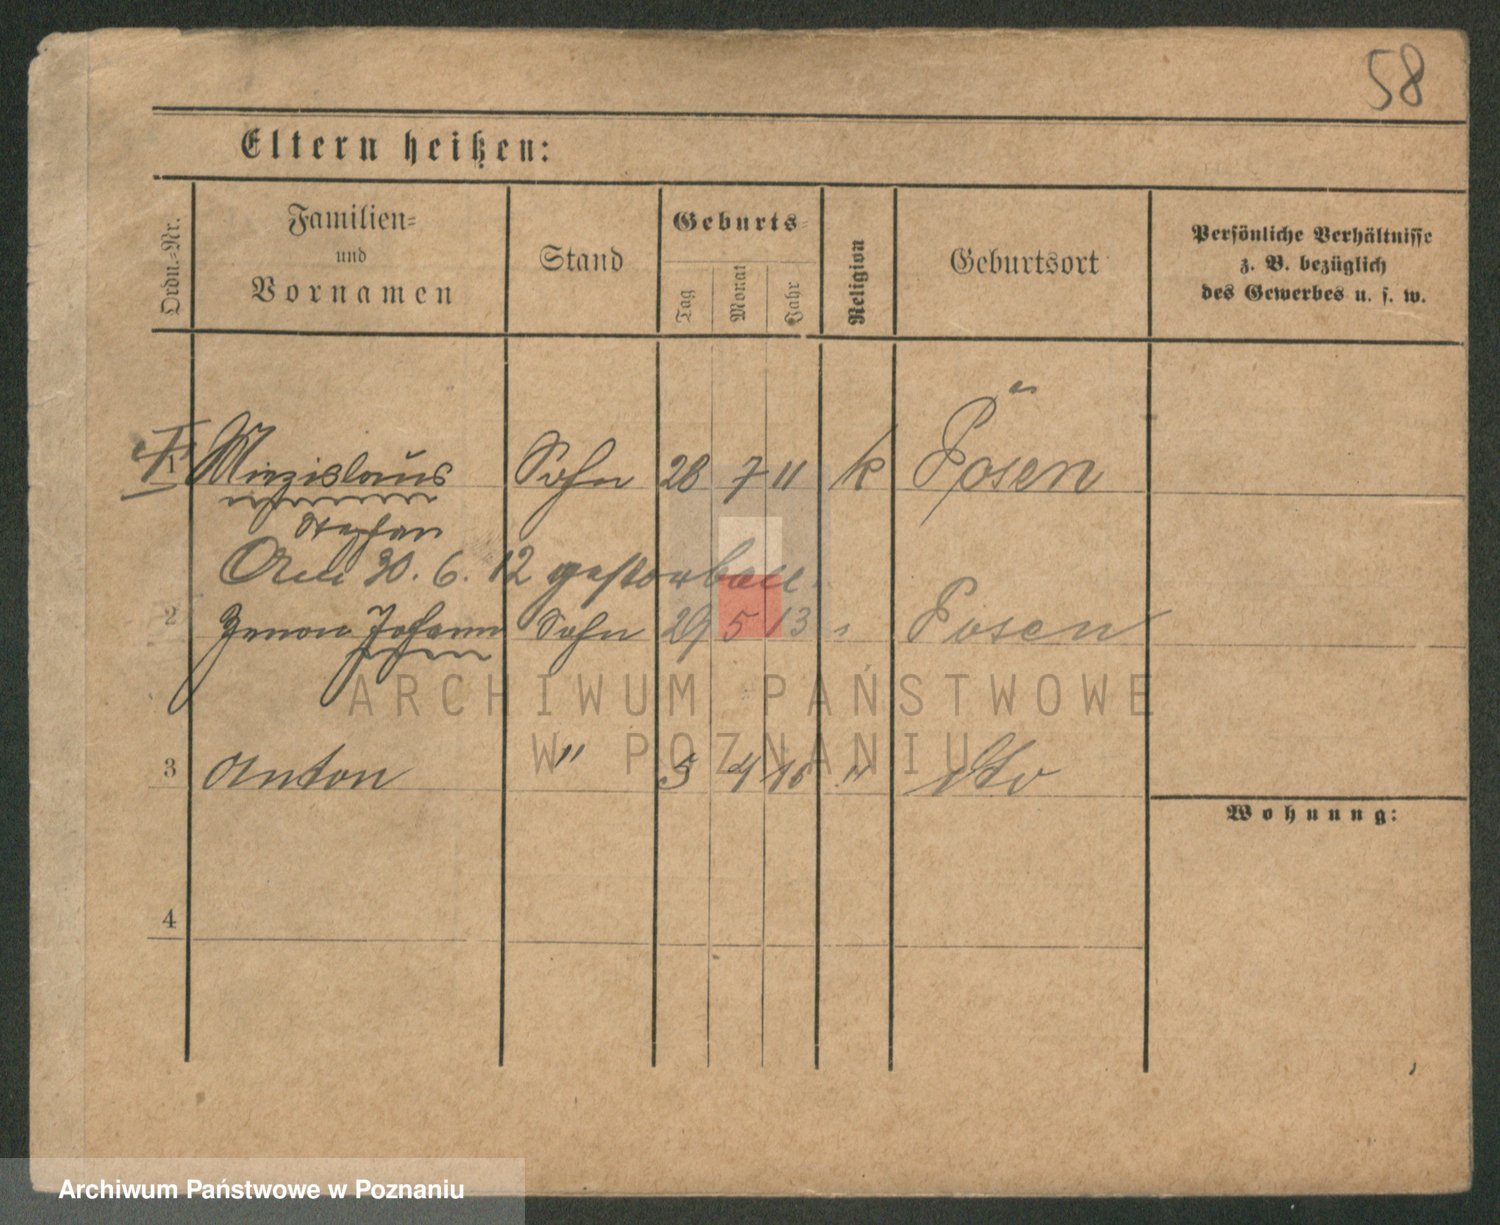 58
Eltern heißen:
Ordn.-Nr.
Familien-
und
Vornamen
Stand
Geburts-
Tag
Monat
Jahr
Religion
Geburtsort
Persönliche Verhältnisse
z. B. bezüglich
des Gewerbes u. s. w.
1 Miezislaus Sohn 28 7 11 k Posen
Stephan
Am 30. 6. 12 gestorben.
2 Zenon Johann Sohn 29 5 13 " Posen
ARCHIWUM PAŃSTWOWE
W POZNANIU
3 Anton " 5 4 16 " dto
Wohnung:
4
Archiwum Państwowe w Poznaniu